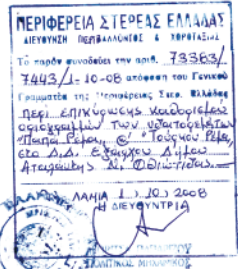 ΠΕΡΙΦΕΡΕΙΑ ΣΤΕΡΕΑΣ ΕΛΛΑΔΑΣ
ΔΙΕΥΘΥΝΣΗ ΠΕΡΙΒΑΛΛΟΝΤΟΣ & ΧΩΡΟΤΑΞΙΑΣ
Το παρόν συνοδεύει την αριθ. 73383/
7443/1-10-08 απόφαση του Γενικού
Γραμματέα της Περιφέρειας Στερ. Ελλάδας
περί επικύρωσης καθορισμού
οριογραμμών των υδατορεμάτων
"Παπά Ρέμα", & "Τούρκου Ρέμα,
στο Δ.Δ. Εξάρχου Δήμου
Αταλάντης Ν. Φθιώτιδας.
ΛΑΜΙΑ 1, 10, 2008
Η ΔΙΕΥΘΥΝΤΡΙΑ
ΠΟΛΙΤΙΚΟΣ ΜΗΧΑΝΙΚΟΣ